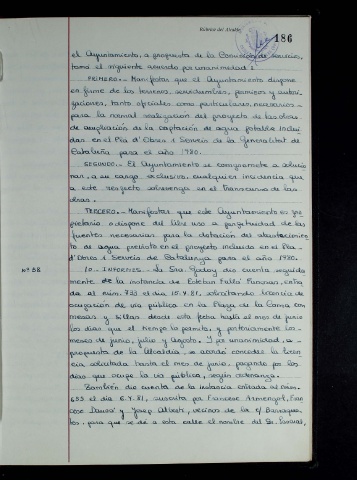 Rúbrica del Alcalde,
186
el Ayuntamiento, a propuesta de la Comisión de Servicios,
tomó el siguiente acuerdo por unanimidad:
PRIMERO.- Manifestar que el Ayuntamiento dispone
en firme de los terrenos, servidumbres, permisos y autori-
zaciones, tanto oficiales como particulares, necesarios
para la normal realización del proyecto de las obras
de ampliación de la captación de agua potable inclui-
das en el Pla d'Obres i Serveis de la Generalitat de
Cataluña para el año 1980.
SEGUNDO.- El Ayuntamiento se compromete a solucio-
nar, a su cargo exclusivo, cualquier incidencia que
a este respecto sobrevenga en el transcurso de las
obras.
TERCERO.- Manifestar que este Ayuntamiento es pro-
pietario o dispone del libre uso a perpetuidad de las
fuentes necesarias para la dotación del abastecimien-
to de agua previsto en el proyecto incluido en el Pla
d'Obres i Serveis de Catalunya para el año 1980.
Nº 58
10.- INFORMES.- La Sra. Godoy dio cuenta seguida-
mente de la instancia de Esteban Fulló Punsoms, entra-
da al núm. 723 el día 15.4.81, solicitando licencia de
ocupación de vía pública en la Plaza de la Conca con
mesas y sillas desde esta fecha hasta el mes de junio
los días que el tiempo lo permita, y posteriormente los
meses de junio, julio y agosto. Y por unanimidad, a
propuesta de la Alcaldía, se acordó conceder la licen-
cia solicitada hasta el mes de junio, pagando por los
días que ocupe la vía pública, según ordenanza.
También dio cuenta de la instancia entrada al núm.
653 el día 6.4.81, suscrita por Francesc Armengol, Fran-
cesc Dausà y Josep Albert, vecinos de la c/ Barraque-
tes, para que se dé a esta calle el nombre del Dr.